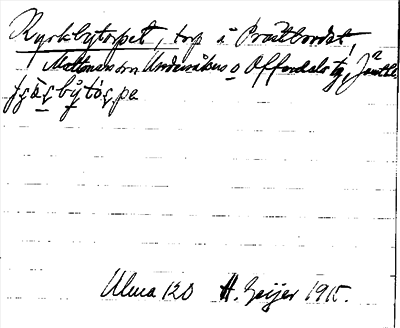 Kyrkbytorpet, torp i Prästbordet,
Mattmars sn Undersåkers o Offerdals tg, Jämtl.
Ulma 120 H. Geijer 1915.